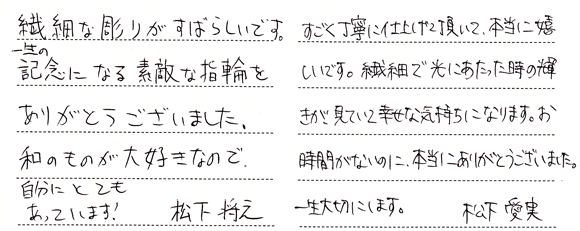 繊細な彫りがすばらしいです。
一生の
記念になる素敵な指輪を
ありがとうございました、
和のものが大好きなので、
自分にとても
あっています!
松下 将え
すごく丁寧に仕上げて頂いて、本当に嬉
しいです。繊細で光にあたった時の輝
きが見ていて幸せな気持ちになります。お
時間がないのに、本当にありがとうございました。
一生大切にします。
松下 愛実